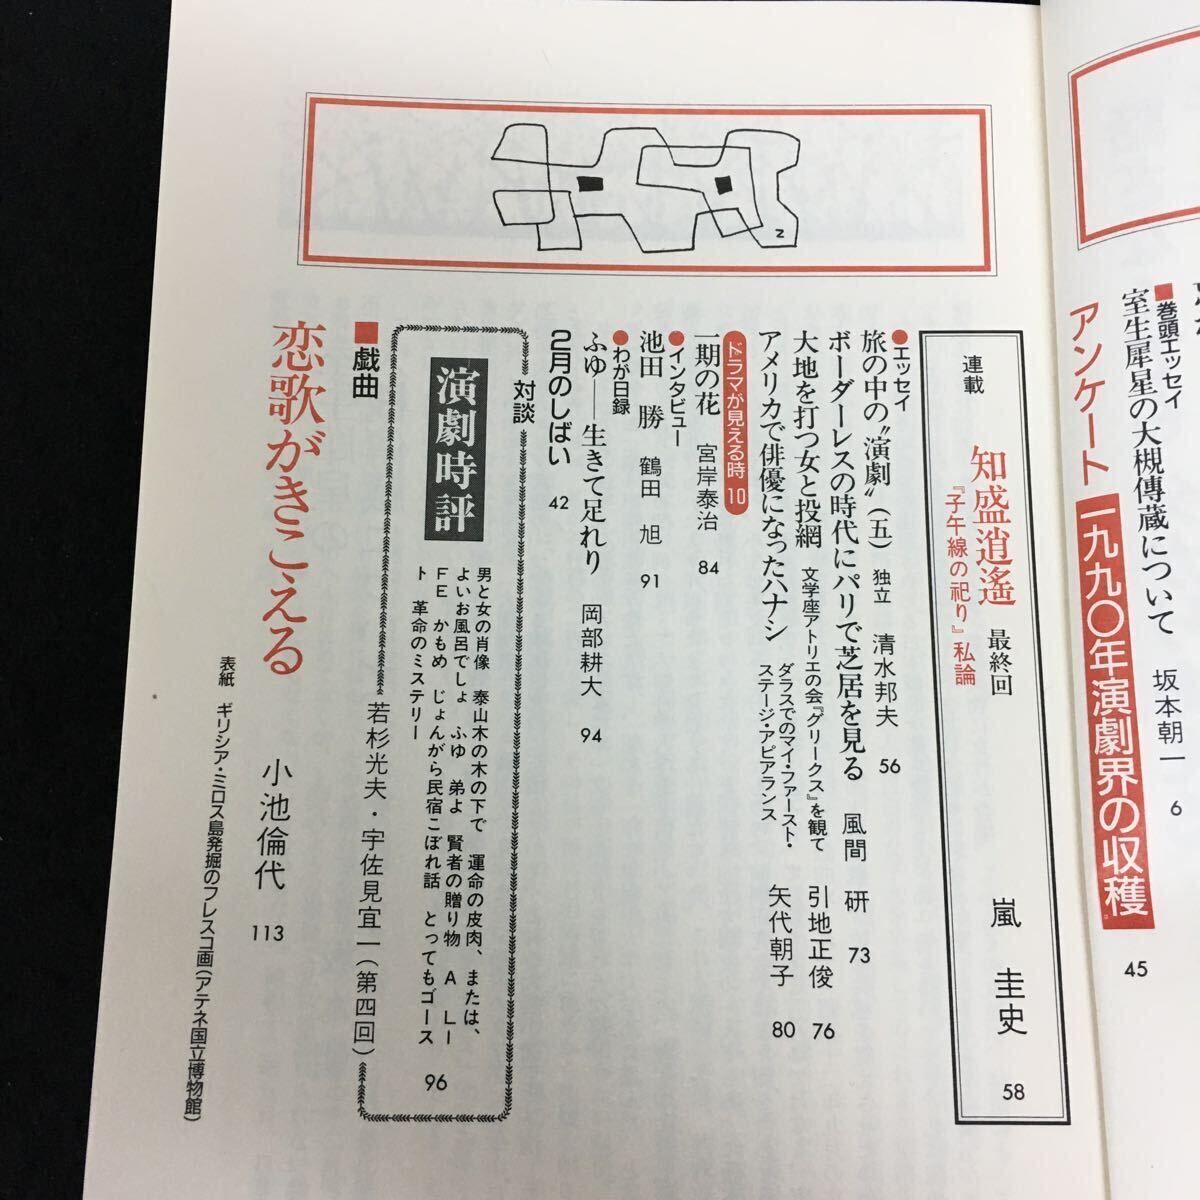 ■巻頭エッセイ
室生犀星の大槻傳蔵について 坂本朝一 6
アンケート 一九九〇年演劇界の収穫 45
連載
知盛逍遙 最終回
『子午線の祀り』私論
嵐 圭史 58
●エッセイ
旅の中の〝演劇〟(五) 独立 清水邦夫 56
ボーダーレスの時代にパリで芝居を見る 風間 研 73
大地を打つ女と投網 文学座アトリエの会『グリークス』を観て 引地正俊 76
アメリカで俳優になったハナシ ダラスでのマイ・ファースト・ステージ・アピアランス 矢代朝子 80
ドラマが見える時 10
一期の花 宮岸泰治 84
●インタビュー
池田 勝 鶴田 旭 91
●わが日録
ふゆ──生きて足れり 岡部耕大 94
2月のしばい 42
対談
演劇時評
男と女の肖像 泰山木の木の下で 運命の皮肉、または、
よいお風呂でしょ ふゆ 弟よ 賢者の贈り物 A LI
FE かもめ じょんがら民宿こぼれ話 とってもゴース
ト 革命のミステリー
96
若杉光夫・宇佐見宜一(第四回)
■戯曲
恋歌がきこえる 小池倫代 113
表紙 ギリシア・ミロス島発掘のフレスコ画(アテネ国立博物館)